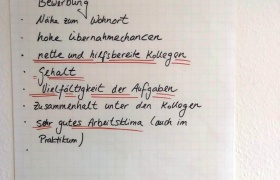 Bewerbung
· Nähe zum Wohnort
· hohe Übernahmechancen
· nette und hilfsbereite Kollegen
· Gehalt
· Vielfältigkeit der Aufgaben
· Zusammenhalt unter den Kollegen
· sehr gutes Arbeitsklima (auch im
Praktikum)
·